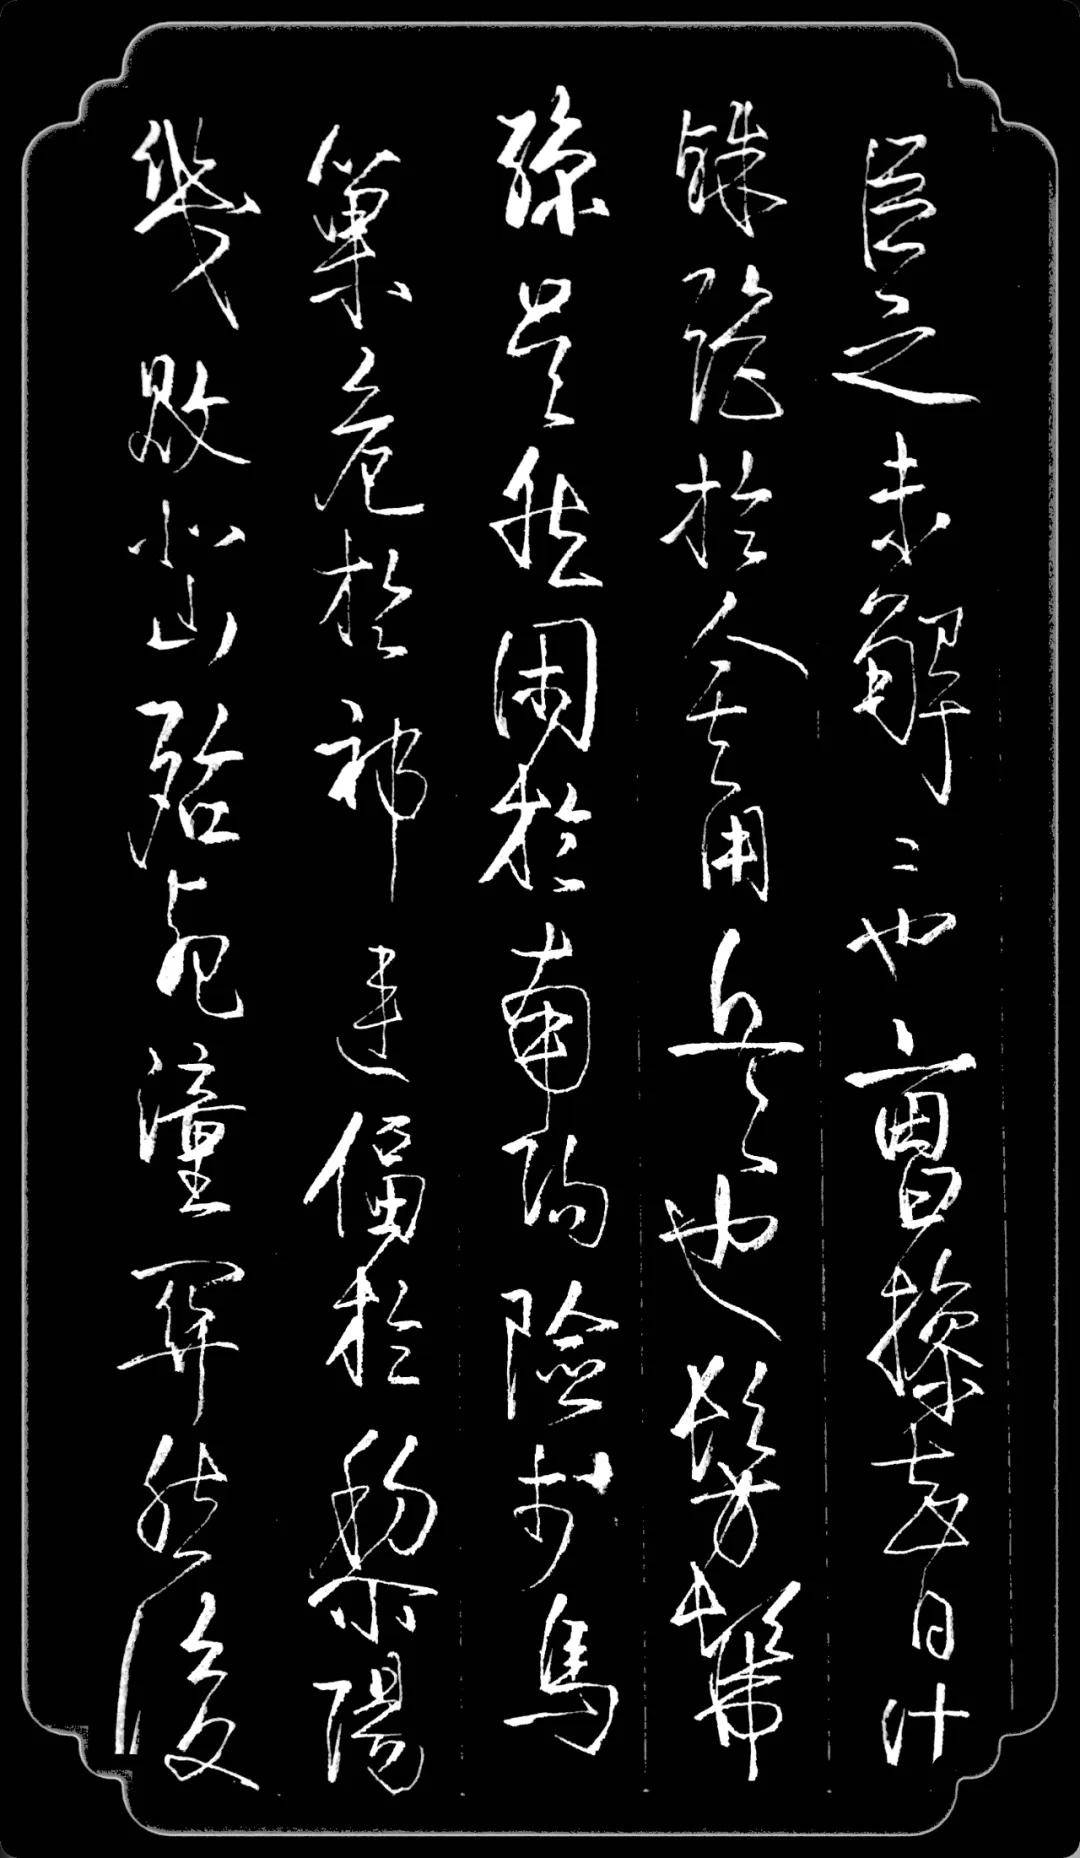 臣之未解二也曹操智計
殊絕於人其用兵也髣髴
孫吳然困於南陽險於烏
巢危於祁連偪於黎陽
幾敗北山殆死潼關然後